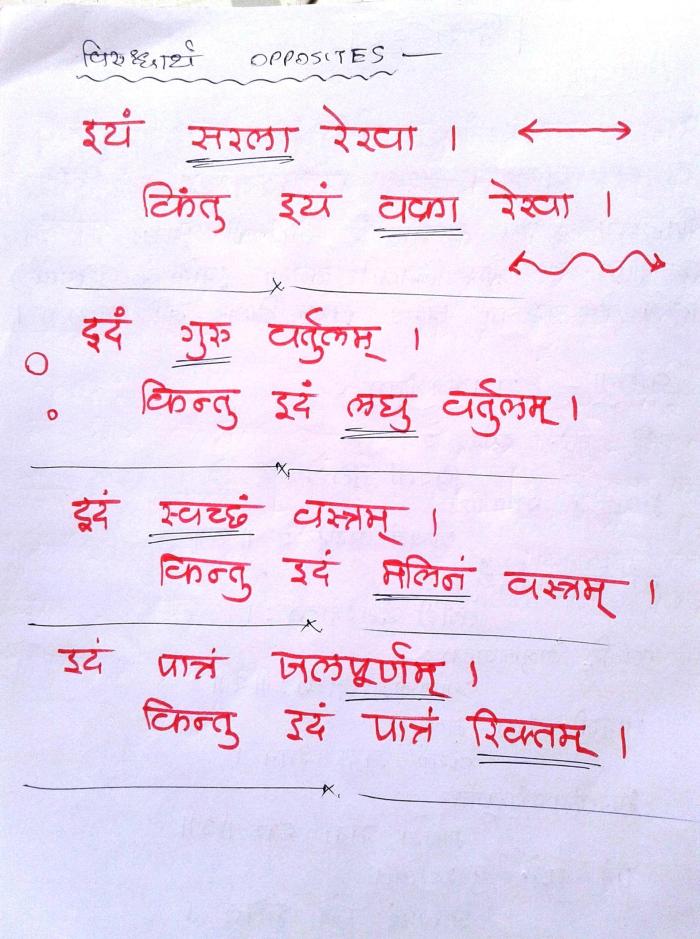 विरुध्धार्थ OPPOSITES —
इयं सरला रेखा ।
किंतु इयं वक्रा रेखा ।
इदं गुरु वर्तुलम् ।
किन्तु इदं लघु वर्तुलम् ।
इदं स्वच्छं वस्त्रम् ।
किन्तु इदं मलिनं वस्त्रम् ।
इदं पात्रं जलपूर्णम् ।
किन्तु इदं पात्रं रिक्तम् ।